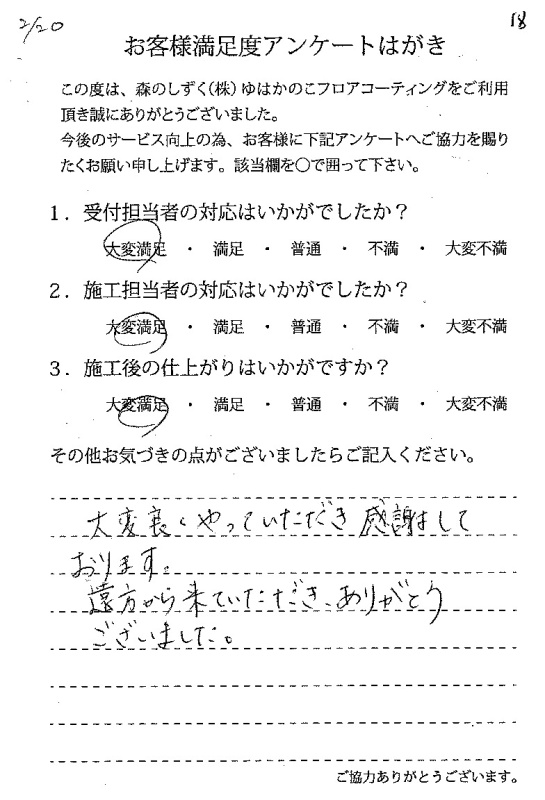 2/20
18
お客様満足度アンケートはがき
この度は、森のしずく(株)ゆはかのこフロアコーティングをご利用
頂き誠にありがとうございました。
今後のサービス向上の為、お客様に下記アンケートへご協力を賜り
たくお願い申し上げます。該当欄を○で囲って下さい。
1．受付担当者の対応はいかがでしたか？
大変満足 ・ 満足 ・ 普通 ・ 不満 ・ 大変不満
2．施工担当者の対応はいかがでしたか？
大変満足 ・ 満足 ・ 普通 ・ 不満 ・ 大変不満
3．施工後の仕上がりはいかがですか？
大変満足 ・ 満足 ・ 普通 ・ 不満 ・ 大変不満
その他お気づきの点がございましたらご記入ください。
大変良くやっていただき感謝して
おります。
遠方から来ていただき、ありがとう
ございました。
ご協力ありがとうございます。